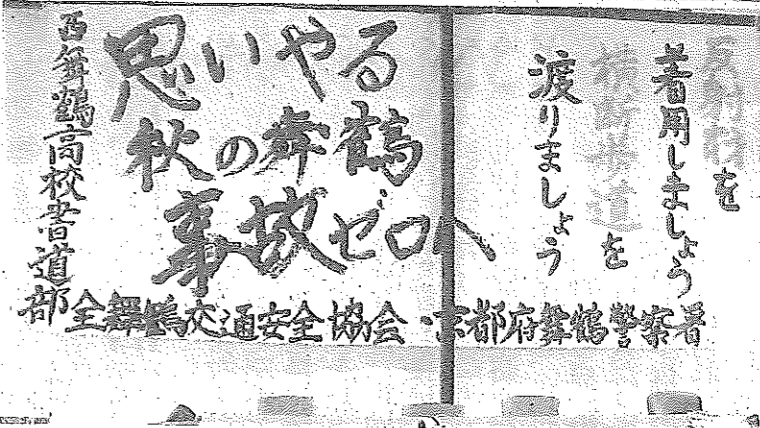 反射材を
着用しましょう
横断歩道を
渡りましょう
思いやる
秋の舞鶴
事故ゼロへ
西舞鶴高校書道部
全舞鶴交通安全協会・京都府舞鶴警察署